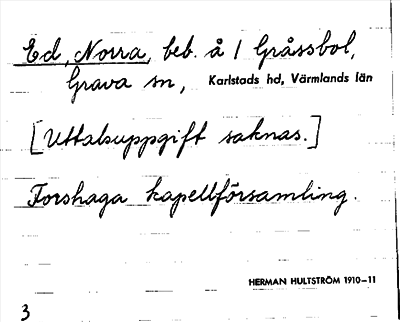 Ed, Norra, beb. å 1 Gråssbol,
Grava sn, Karlstads hd, Värmlands län
[Uttalsuppgift saknas.]
Forshaga kapellförsamling.
HERMAN HULTSTRÖM 1910-11
3